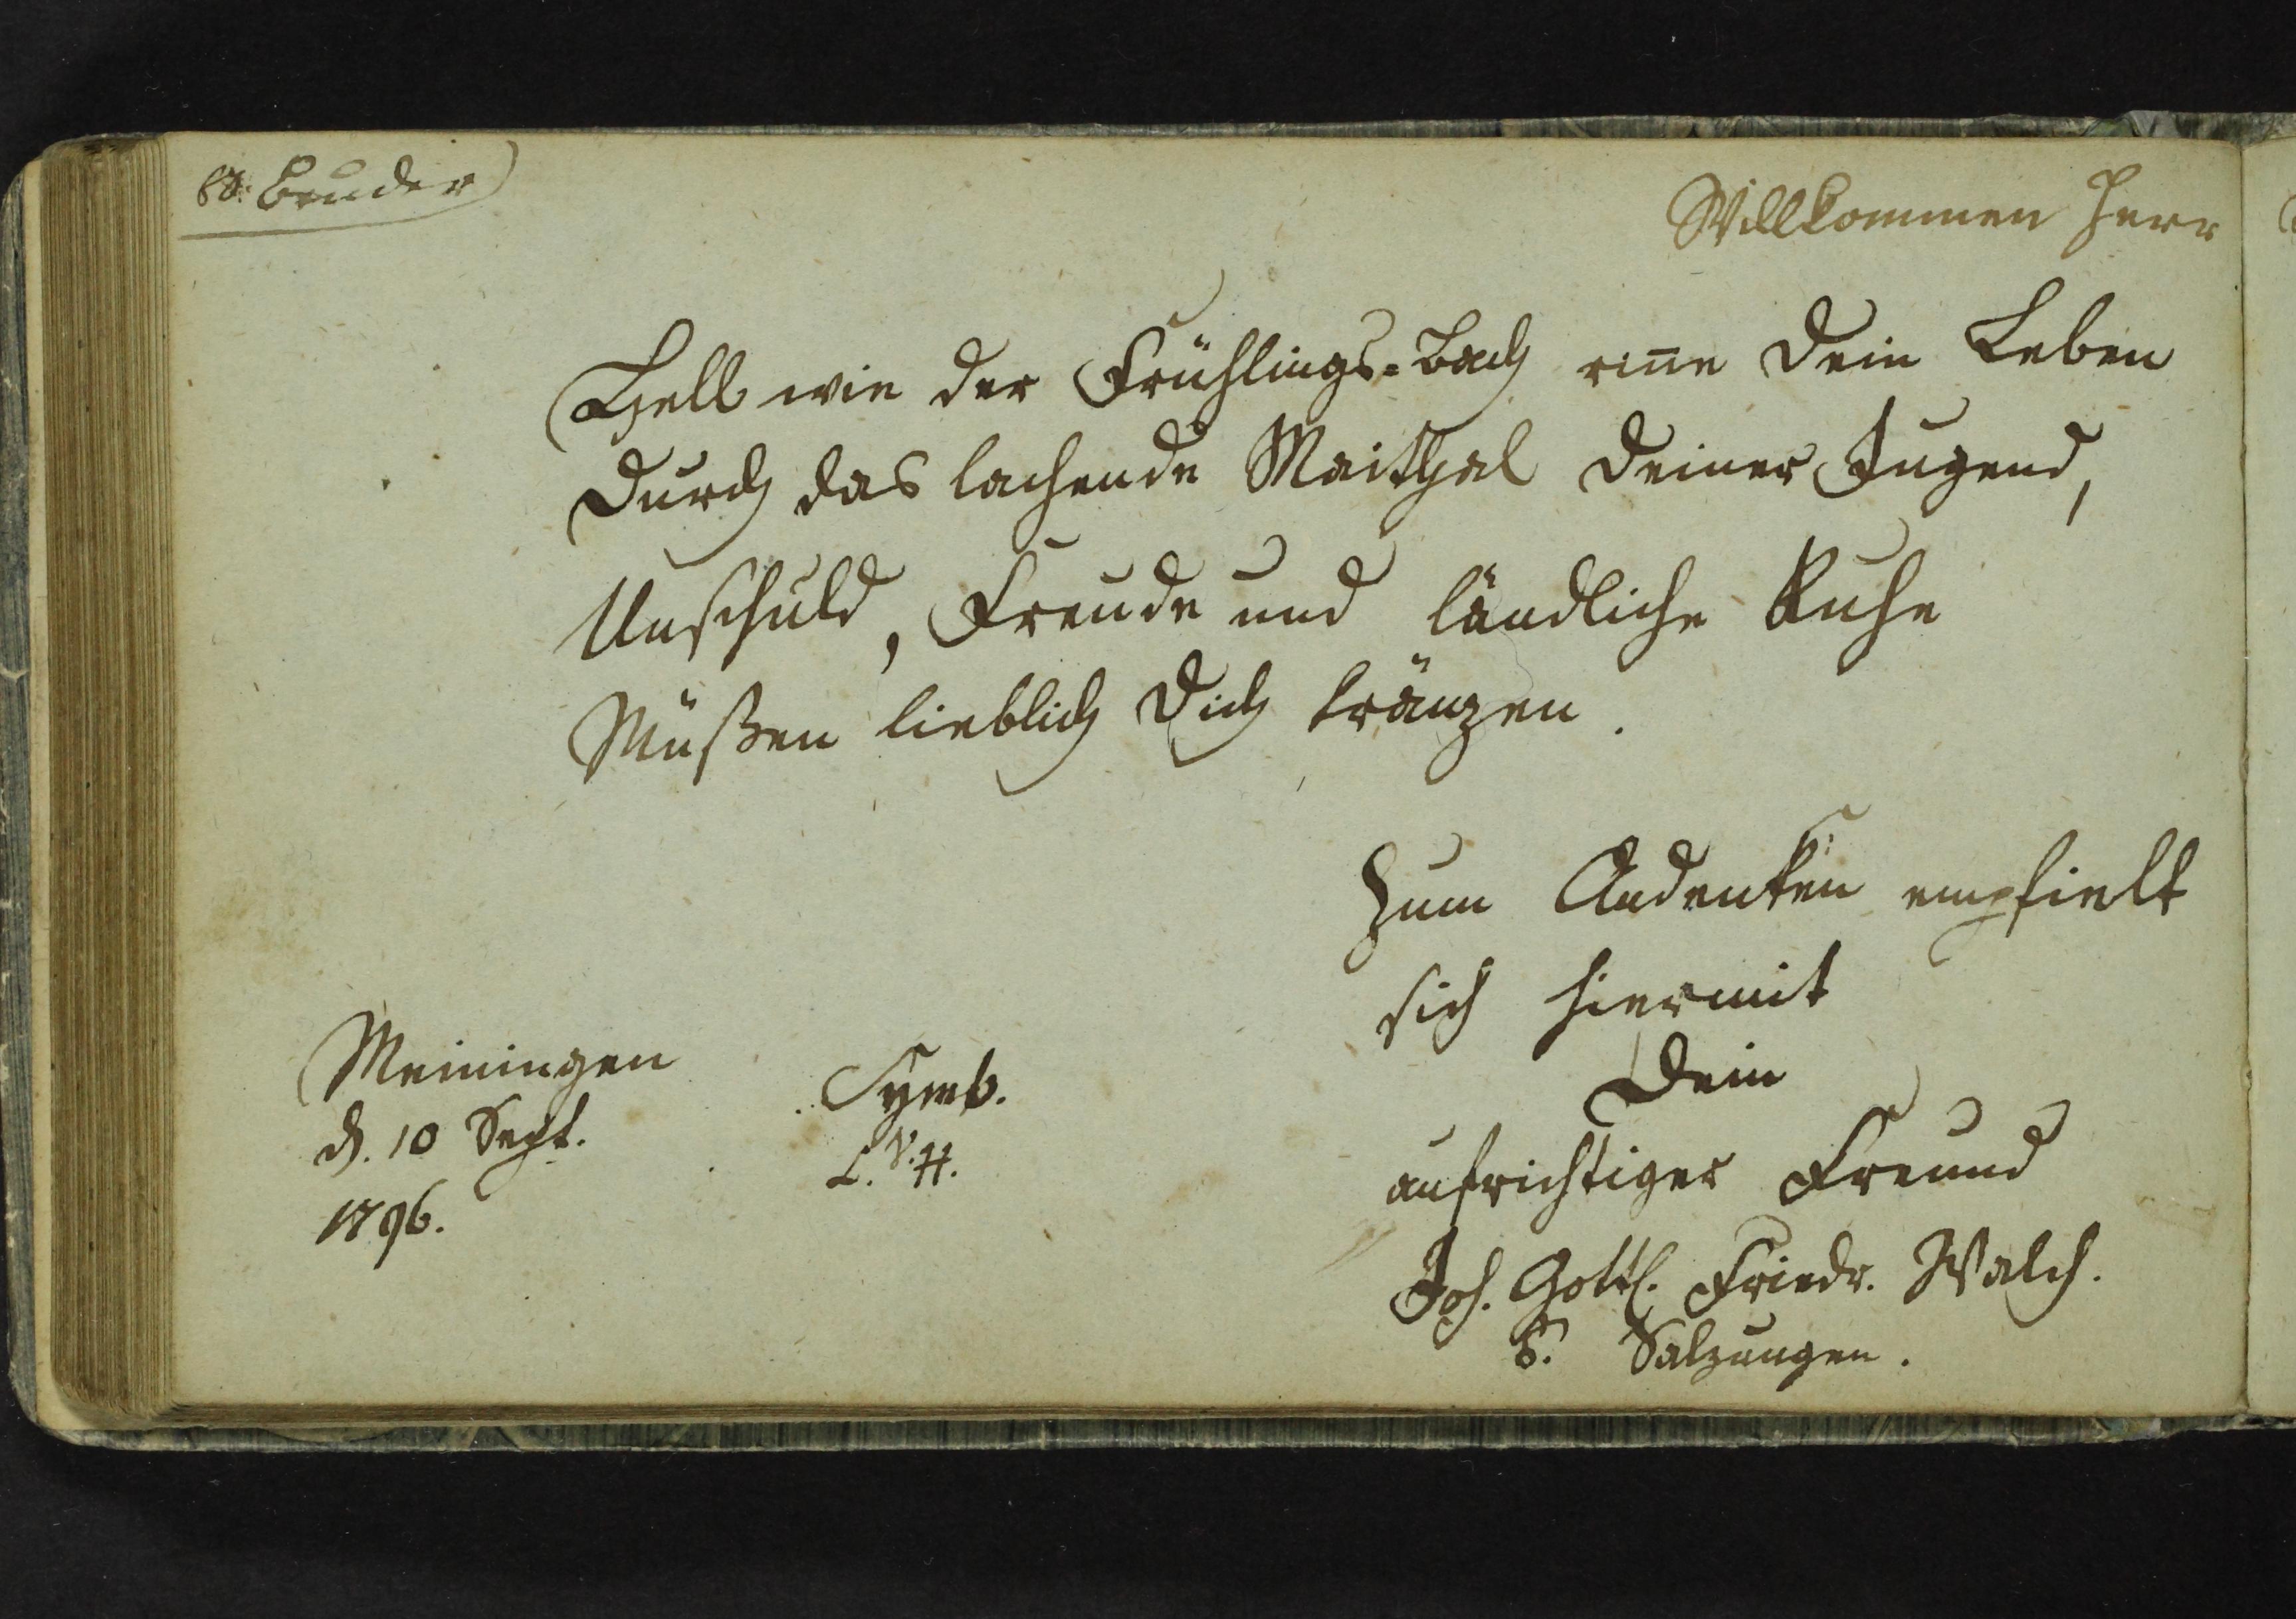 Bruder
Willkommen Herr
Hell wie der Frühlings-Bach riñe Dein Leben
Durch das lachende Maithal Deiner Jugend,
Unschuld, Freude und ländliche Ruhe
Müßen lieblich Dich kränzen.
Zum Andenken empfielt
sich hiermit
Dein
aufrichtiger Freund
Joh. Gottl. Friedr. Walch.
Salzungen.
Meiningen
d. 10 Sept.
1796.
Symb.
L. V. H.